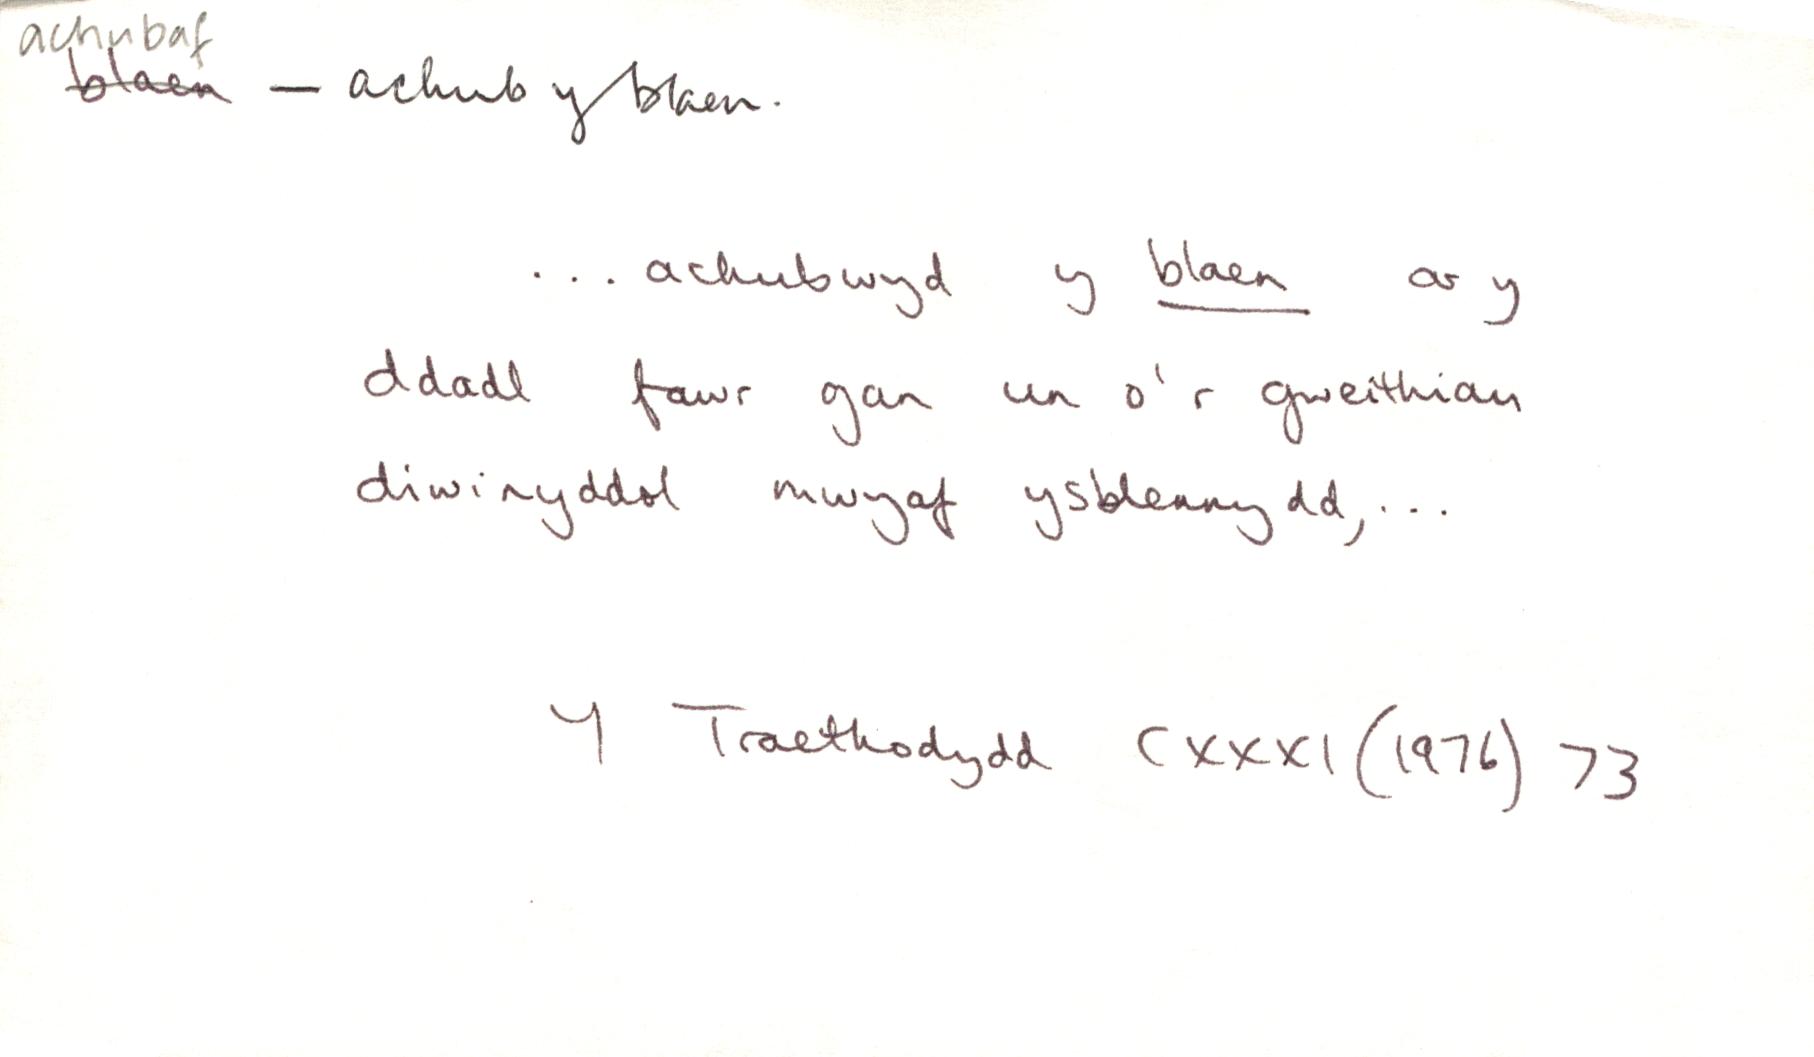 achubaf
blaen — achub y blaen.
... achubwyd y blaen ar y
ddadl fawr gan un o'r gweithiau
diwinyddol mwyaf ysblennydd,...
Y Traethodydd CXXXI (1976) 73